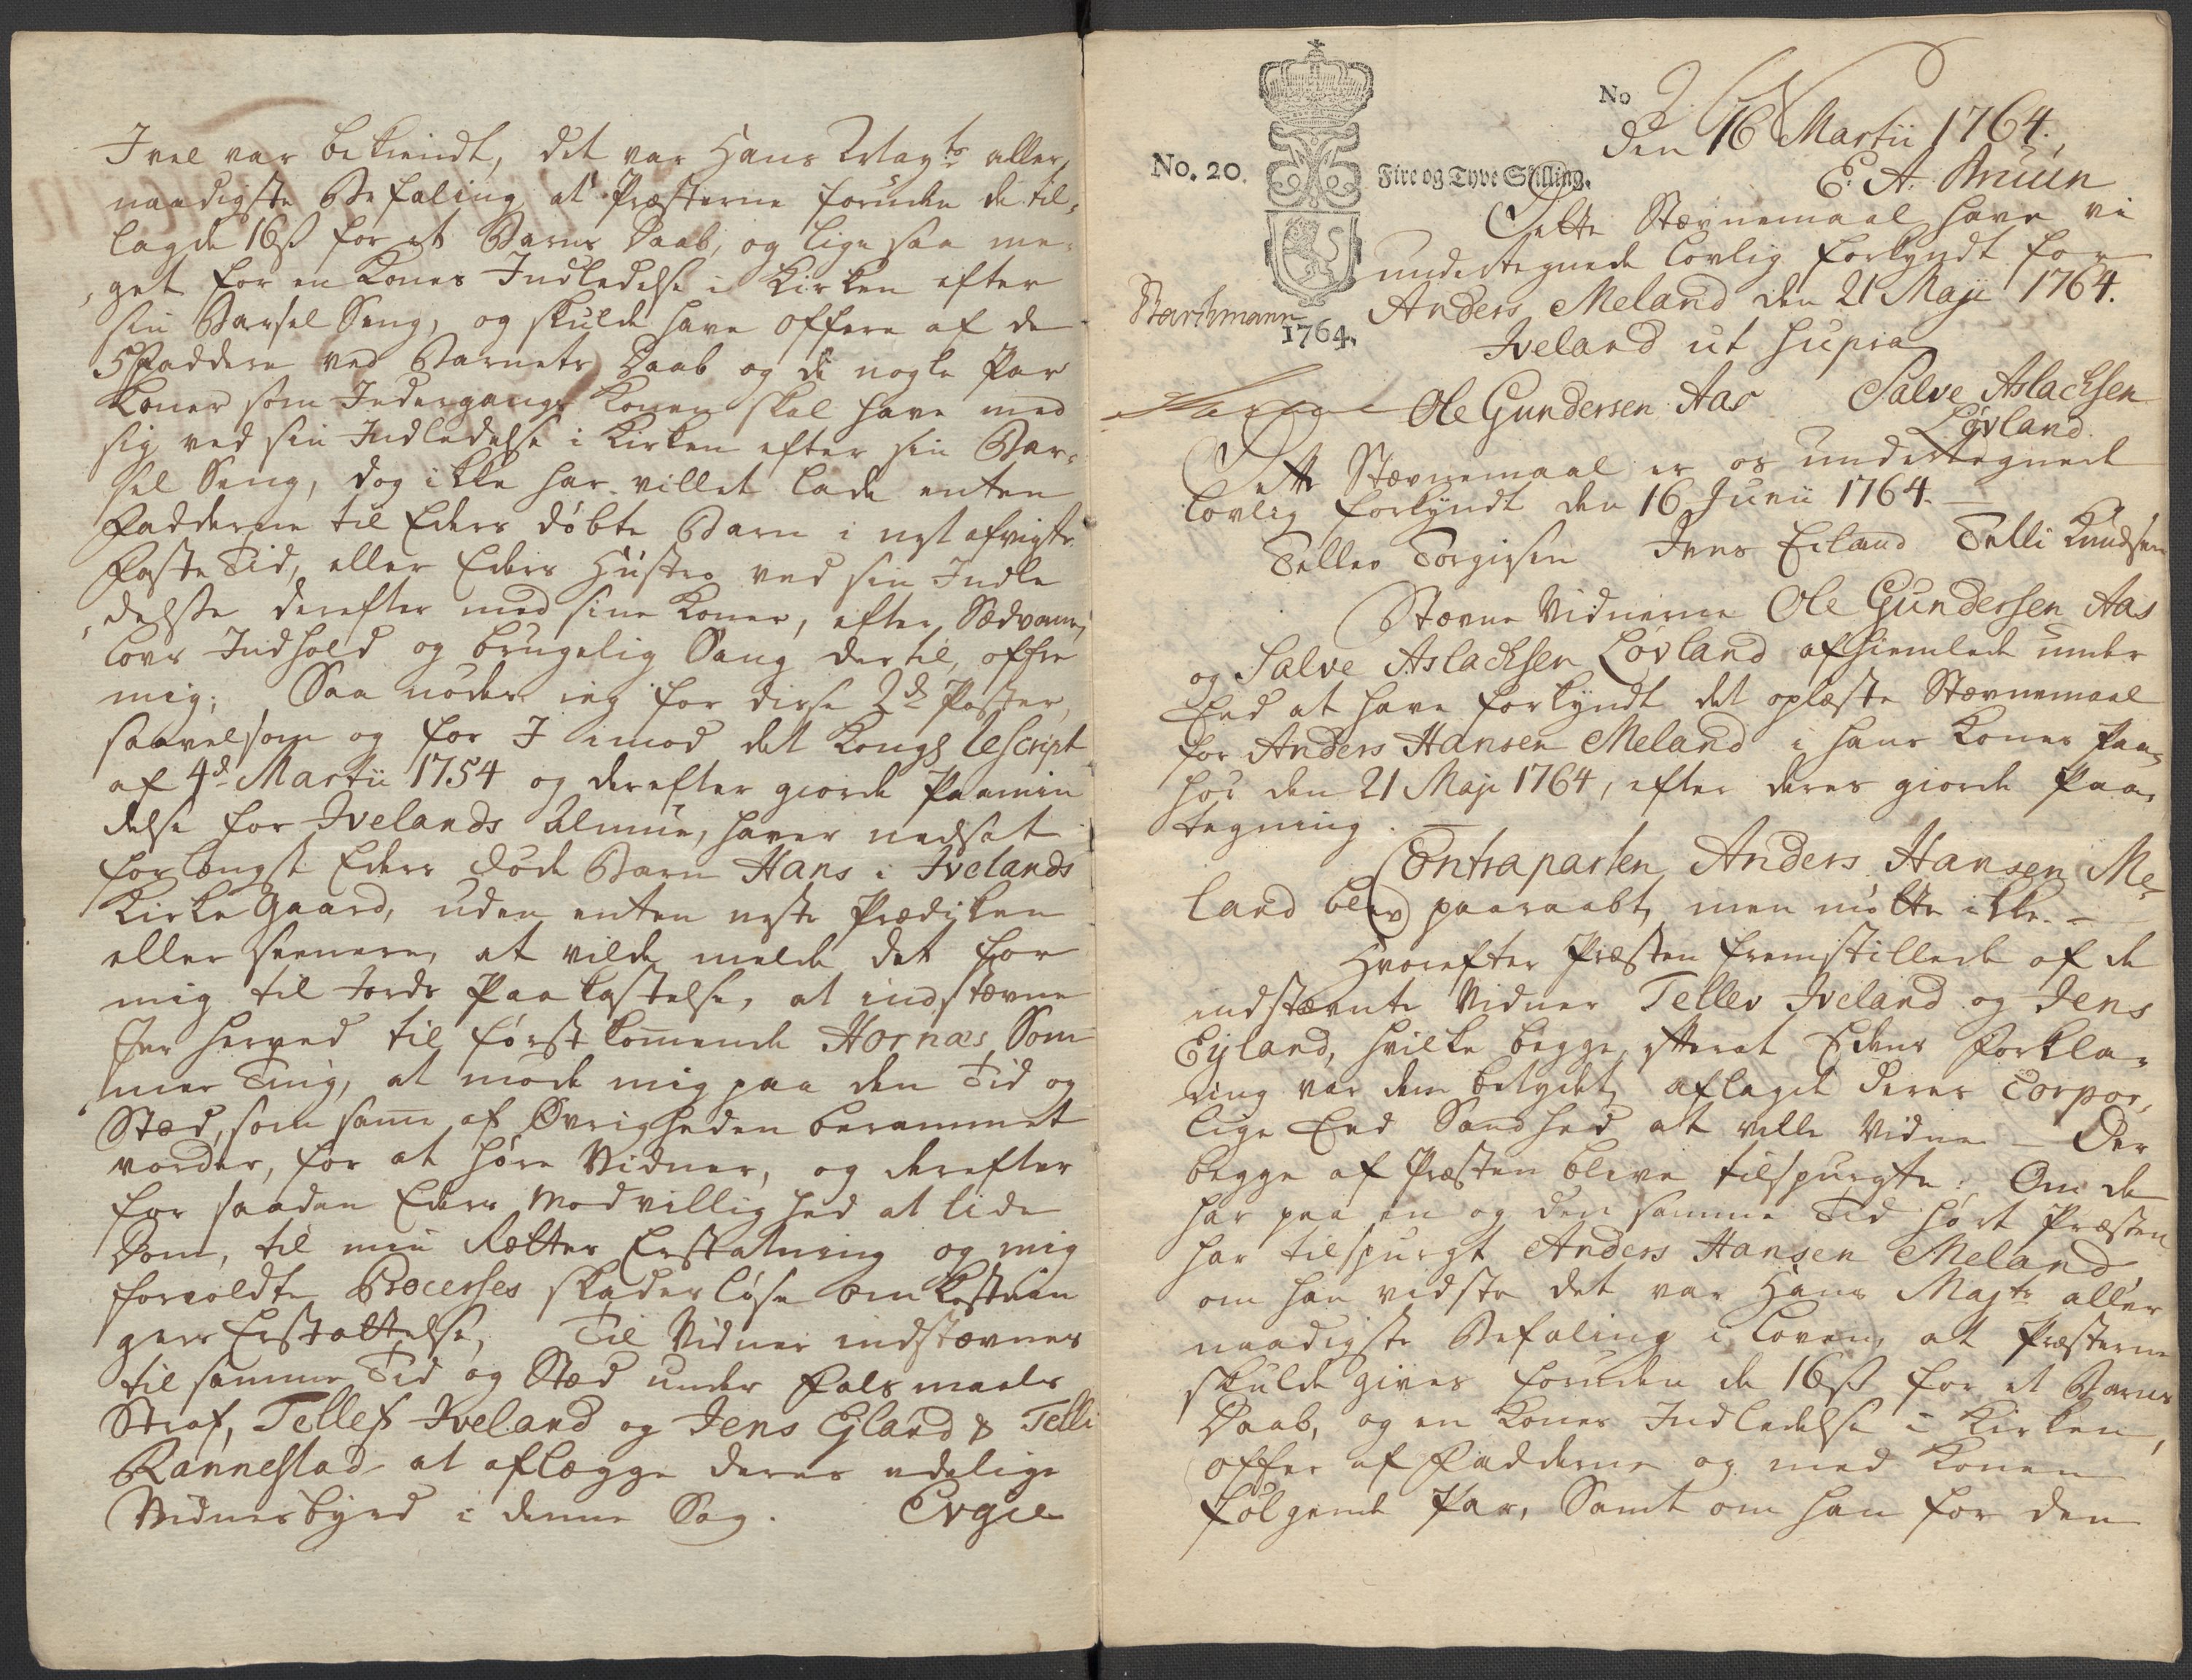 I vel var bekiendt, det var Hans Mayts aller,
naadigste Befaling at Præsterne foruden de til,
lagde 16ß for et Barns Daab, og lige saa me-
,get for en Kones Indledelse i Kirken efter
sin Barsel Seng, og skulde have offere af de
5 Faddere ved Barnets Daab og de nogle Par
Koner som Indergangs Konen skal have med
sig ved sin Indledelse i Kirken efter sin Bar-
sel Seng, dog ikke har villet lade enten
Fadderne til Eders døbte Barn i nest afvigte
Faste Tid, eller Eders Hustro ved sin Indle
,delse derefter med sine Koner, efter Sædvane,
lovs Indhold og brugelig Sang dertil, offre
mig; Saa nødes ieg for disse 2de Poster,
saavelsom og for I imod det Kongl Rescript
af 4d Martii 1754 og derefter giorde Paamin
delse for Ivelands Almue, haver nedsat
for længst Eders døde Barn Hans i Ivelands
Kirke Gaard, uden enten neste Prædiken
eller seenere, at vilde melde det for
mig til Jords Paakastelse, at indstævne
Jer herved til første kommende Hornæs Som
mer Ting, at møde mig paa den Tid og
Stæd, som same af Øvrigheden berammet
vorder, for at høre Vidner, og derefter
for saadan Eders Modvillighed at lide
Dom, til min Rettes Erstatning og mig
forvoldte Processes skadesløse Omkostnin
gers Erstattelse, Til Vidner indstævnes
til samme Tid og Stæd under Falsmaals
Straf, Tellef Iveland og Jens Ejland & Telli
Rannestad at aflægge deres edelige
Vidnesbyrd i denne Sag. Evgie
No 2
den 16 Martii 1764.
E. A. Bruun
No. 20. Fire og Tyve Skilling.
Dette Stævnemaal have vi
undertegnede lovlig forkyndt for
Anders Meland den 21 Maji 1764.
Barthmann 1764.
Iveland ut supra
Ole Gundersen Aas Salve Aslachsen
Løvland
Dette Stævnemaal er os undertegnede
lovlig forkyndt den 16 Junii 1764.
Tellev Torgiesen Jens Eiland Telli Knudsen
Stævne Vidnerne Ole Gundersen Aas
og Salve Aslachsen Løvland afhiemlede under
Eed at have forkyndt det oplæste Stævnemaal
for Anders Hansen Meland i hans Kones Paa,
hør den 21 Maji 1764, efter deres giorde Paa,
tegning.
Contraparten Anders Hansen Me-
land blev paaraabt, men mötte ikke. -
Hvorefter Præsten fremstillede af de
indstævnte Vidner Tellev Iveland og Jens
Eyland, hvilke begge, efterat Edens Forkla-
ring var dem betydet, aflagde deres Corpor,
lige Eed Sandhed at ville Vidne - Der
begge af Præsten bleve tilspurgte: Om de
har paa en og den samme Tid hørt Præsten
har tilspurgt Anders Hansen Meland
om han vidste det var Hans Majts aller
naadigste Befaling i Loven, at Præsterne
skulde gives foruden de 16ß for et Barns
Daab, og en Kones Indledelse i Kirken,
offer af Fadderne og med Konen
følgende Par, Samt om han for den